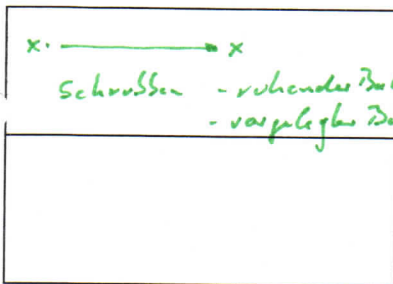 x. x
Schrubben - ruhender Ba
- vorgelegter Ba